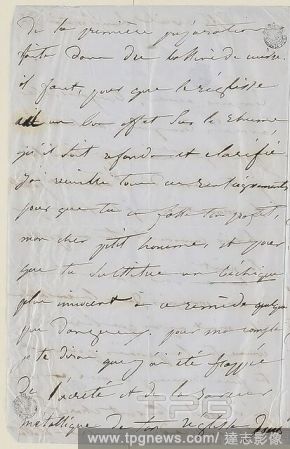 De la première préparation
faite dans des bassines de cuivre.
il faut, pour que le réglisse
ait un bon effet sur le rhume
qu'il soit refondu et clarifié
tous ces renseignements
pour que tu en fasses ton profit,
mon cher p'tit homme, et pour
que tu substitue un
plus innocent à ce remède quelque
peu dangereux. pour mon compte
je te dirai que j'ai été frappée
de l'âcreté et de la saveur
métallique de ton réglisse
TPG
www.tpgnews.com / 達志影像